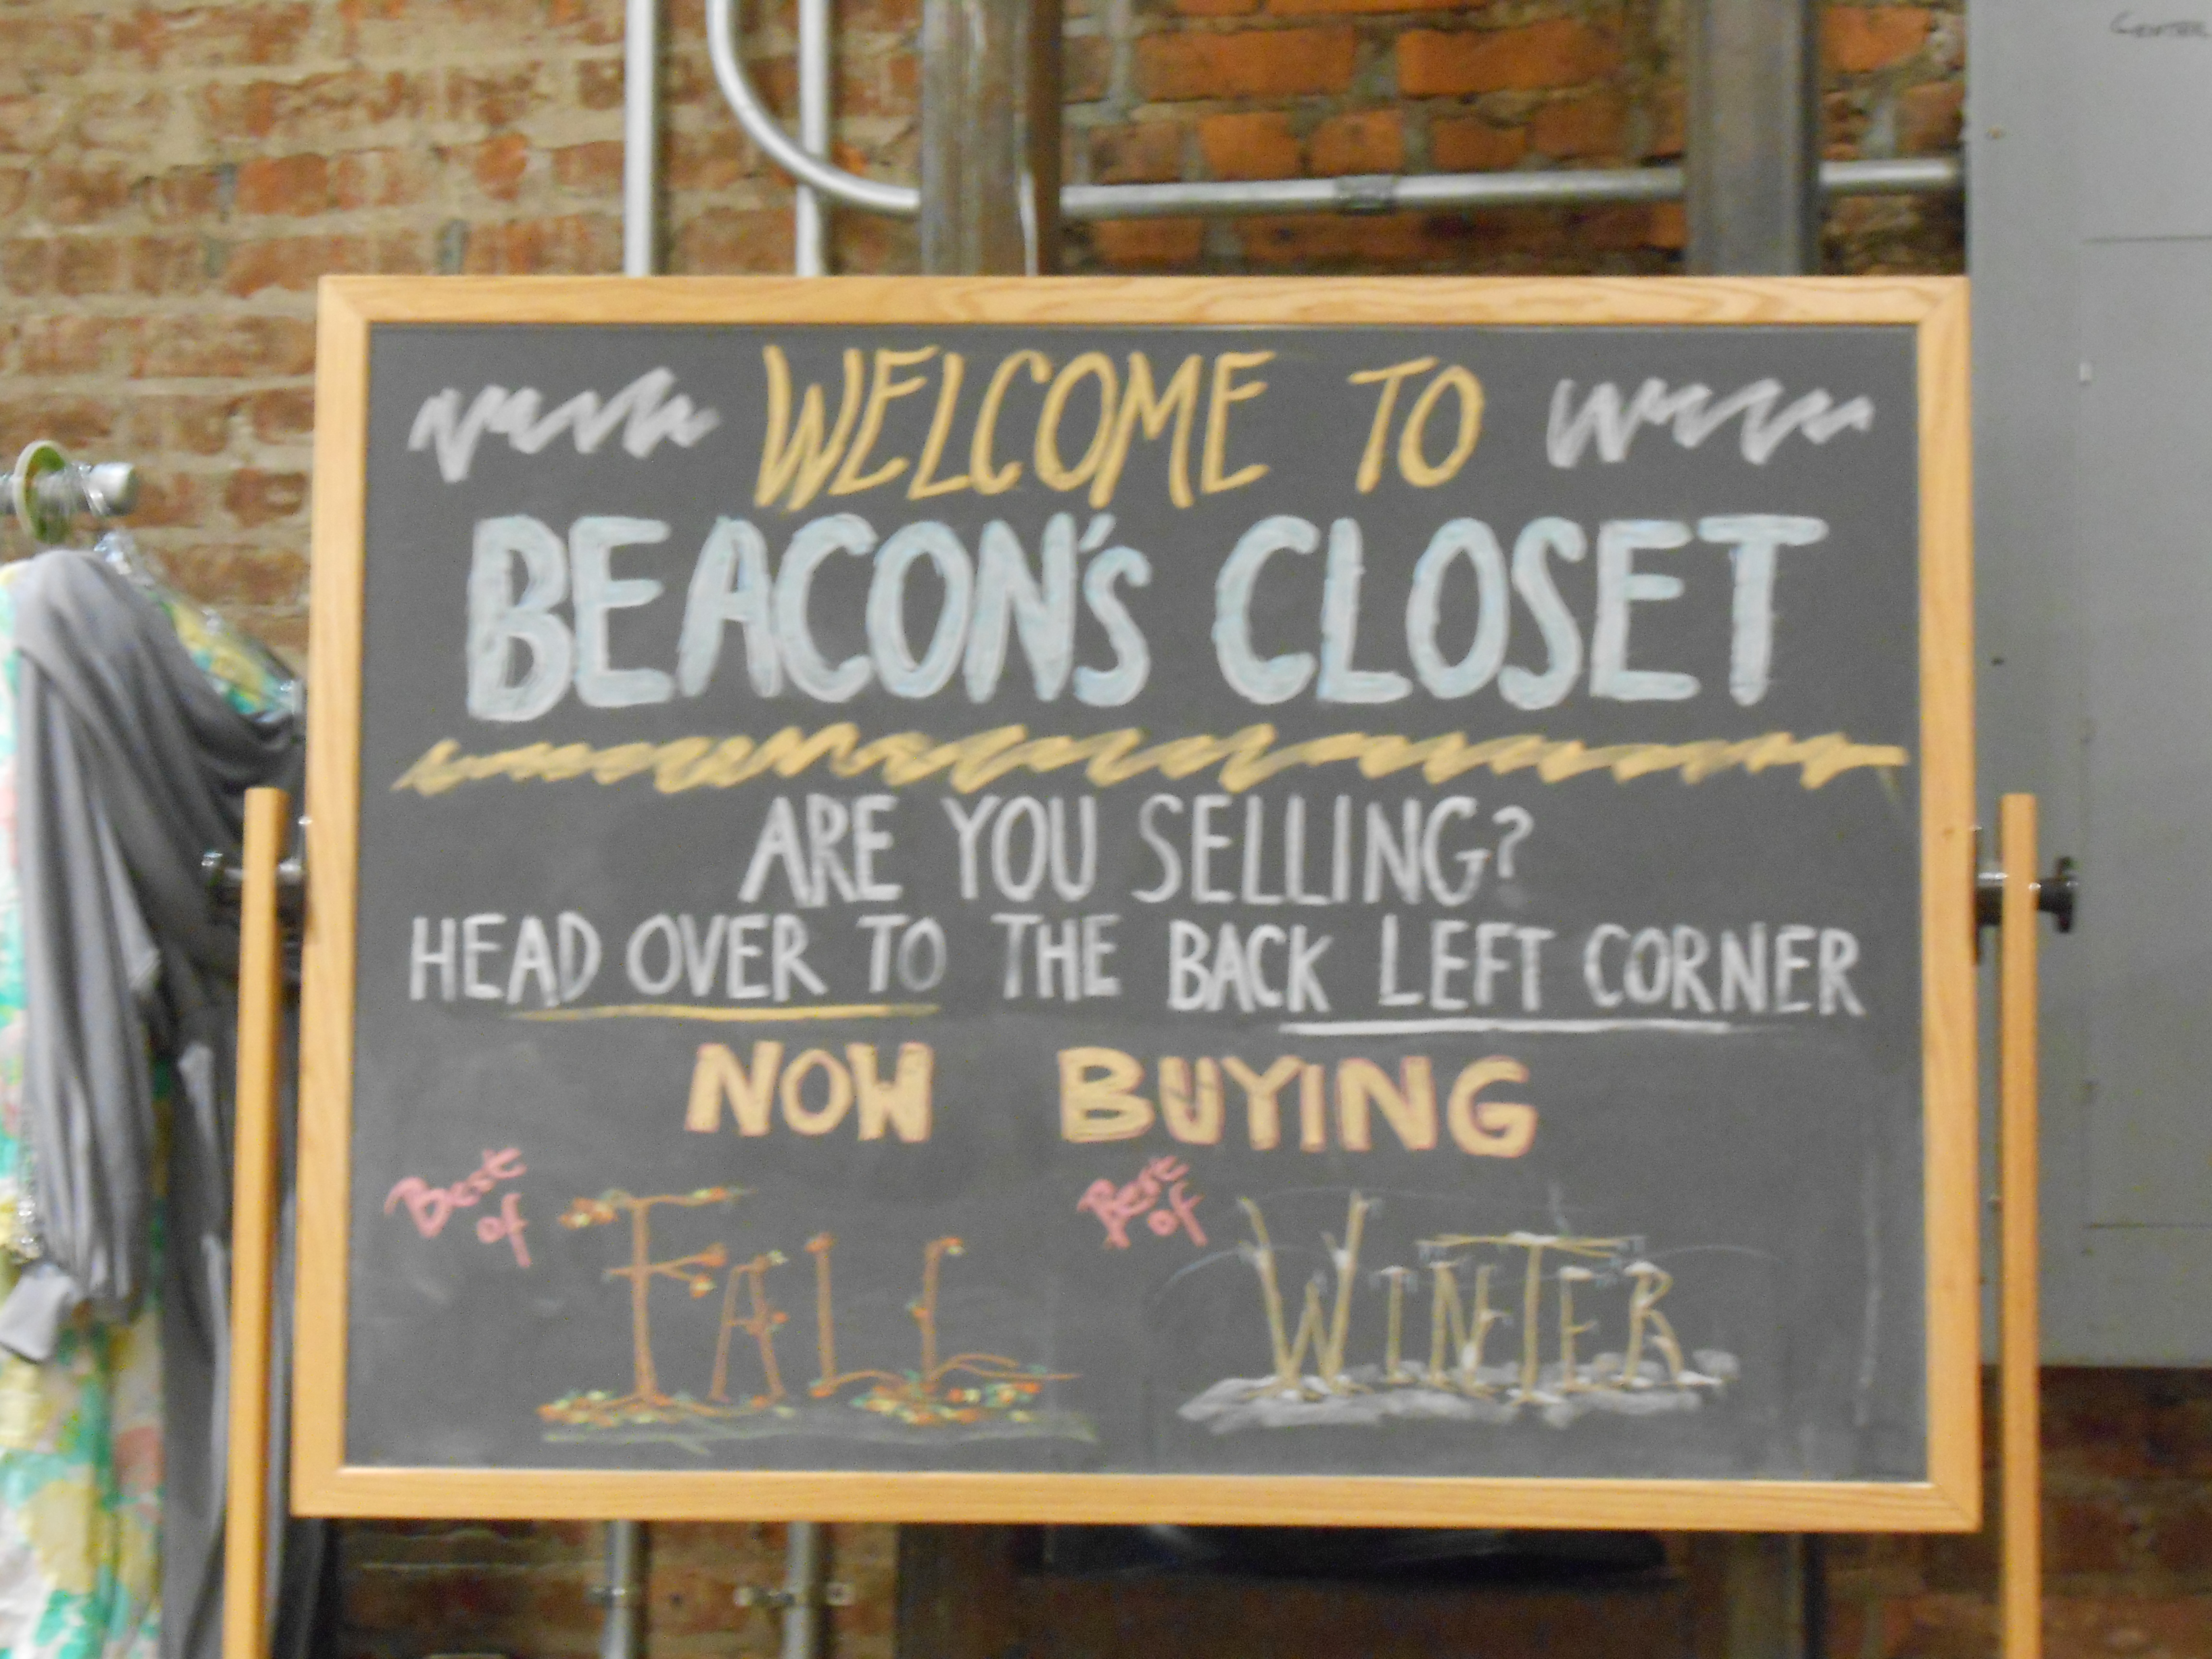 CENTER
WELCOME TO
BEACON'S CLOSET
ARE YOU SELLING?
HEAD OVER TO THE BACK LEFT CORNER
NOW BUYING
Best of FALL
Best of WINTER